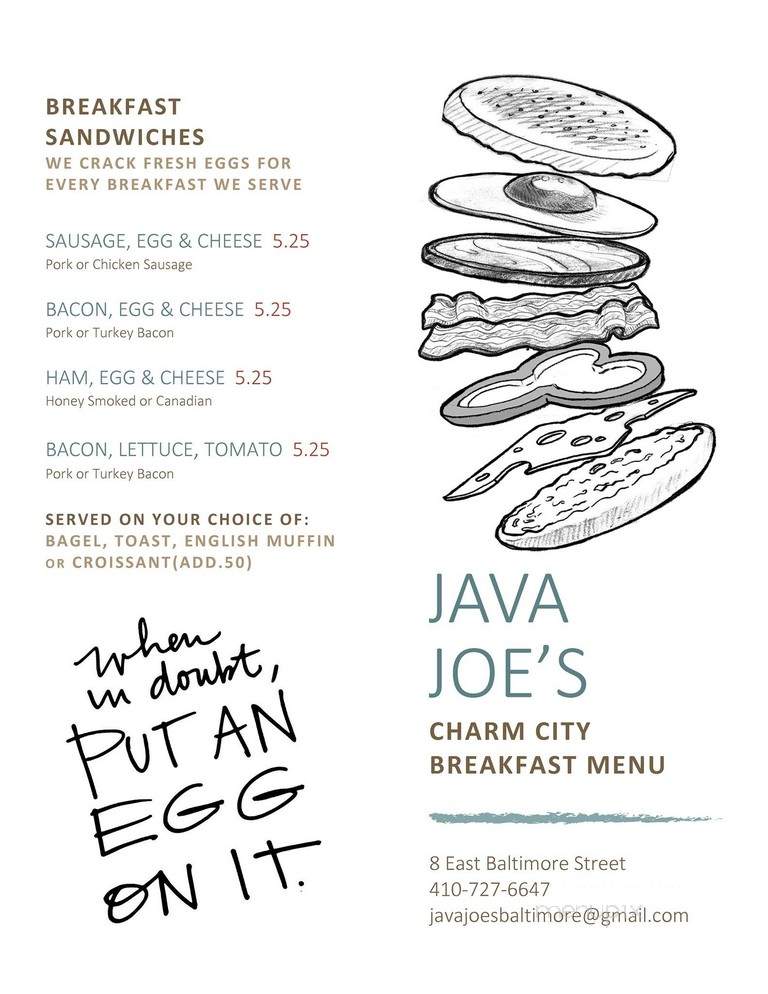 BREAKFAST
SANDWICHES
WE CRACK FRESH EGGS FOR
EVERY BREAKFAST WE SERVE
SAUSAGE, EGG & CHEESE 5.25
Pork or Chicken Sausage
BACON, EGG & CHEESE 5.25
Pork or Turkey Bacon
HAM, EGG & CHEESE 5.25
Honey Smoked or Canadian
BACON, LETTUCE, TOMATO 5.25
Pork or Turkey Bacon
SERVED ON YOUR CHOICE OF:
BAGEL, TOAST, ENGLISH MUFFIN
OR CROISSANT(ADD.50)
when
in doubt,
PUT AN
EGG
ON IT.
JAVA
JOE'S
CHARM CITY
BREAKFAST MENU
8 East Baltimore Street
410-727-6647
javajoesbaltimore@gmail.com